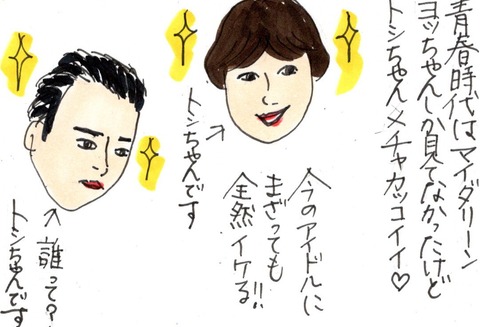 青春時代はマイダリーン
ヨッちゃんしか見てなかったけど
トシちゃんメチャカッコイイ♡
今のアイドルに
まざっても
全然イケる!!
↑
トシちゃんです
↑
誰って?
トシちゃんです